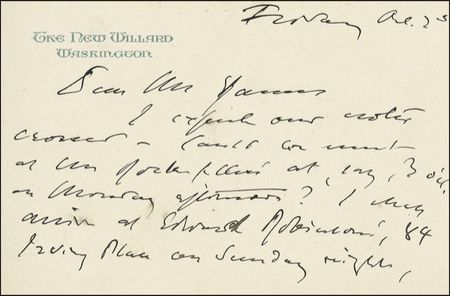 Friday Dec. 23
The New Willard
Washington
Dear Mr
I expect our notes
crossed – Could we meet
at Mr Rockefeller's at, say, 3 o'c
on Monday afternoon? I shall
arrive at Edward Robinson's, 84
Irving Place on Sunday night,